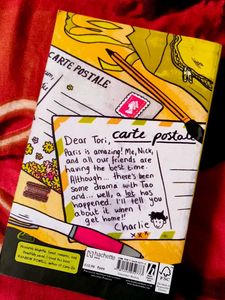 CARTE POSTALE
carte postale
Dear Tori,
Paris is amazing! Me, Nick,
and all our friends are
having the best time.
Although... there's been
some drama with Tao
and... well, a lot has
happened. I'll tell you
about it when I
get home!!
Charlie
xxx
hachette